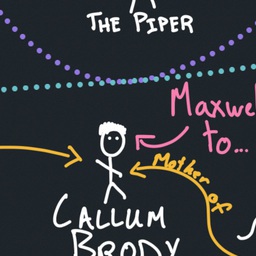 THE PIPER
to...
Mother of
CALLUM
BRODY